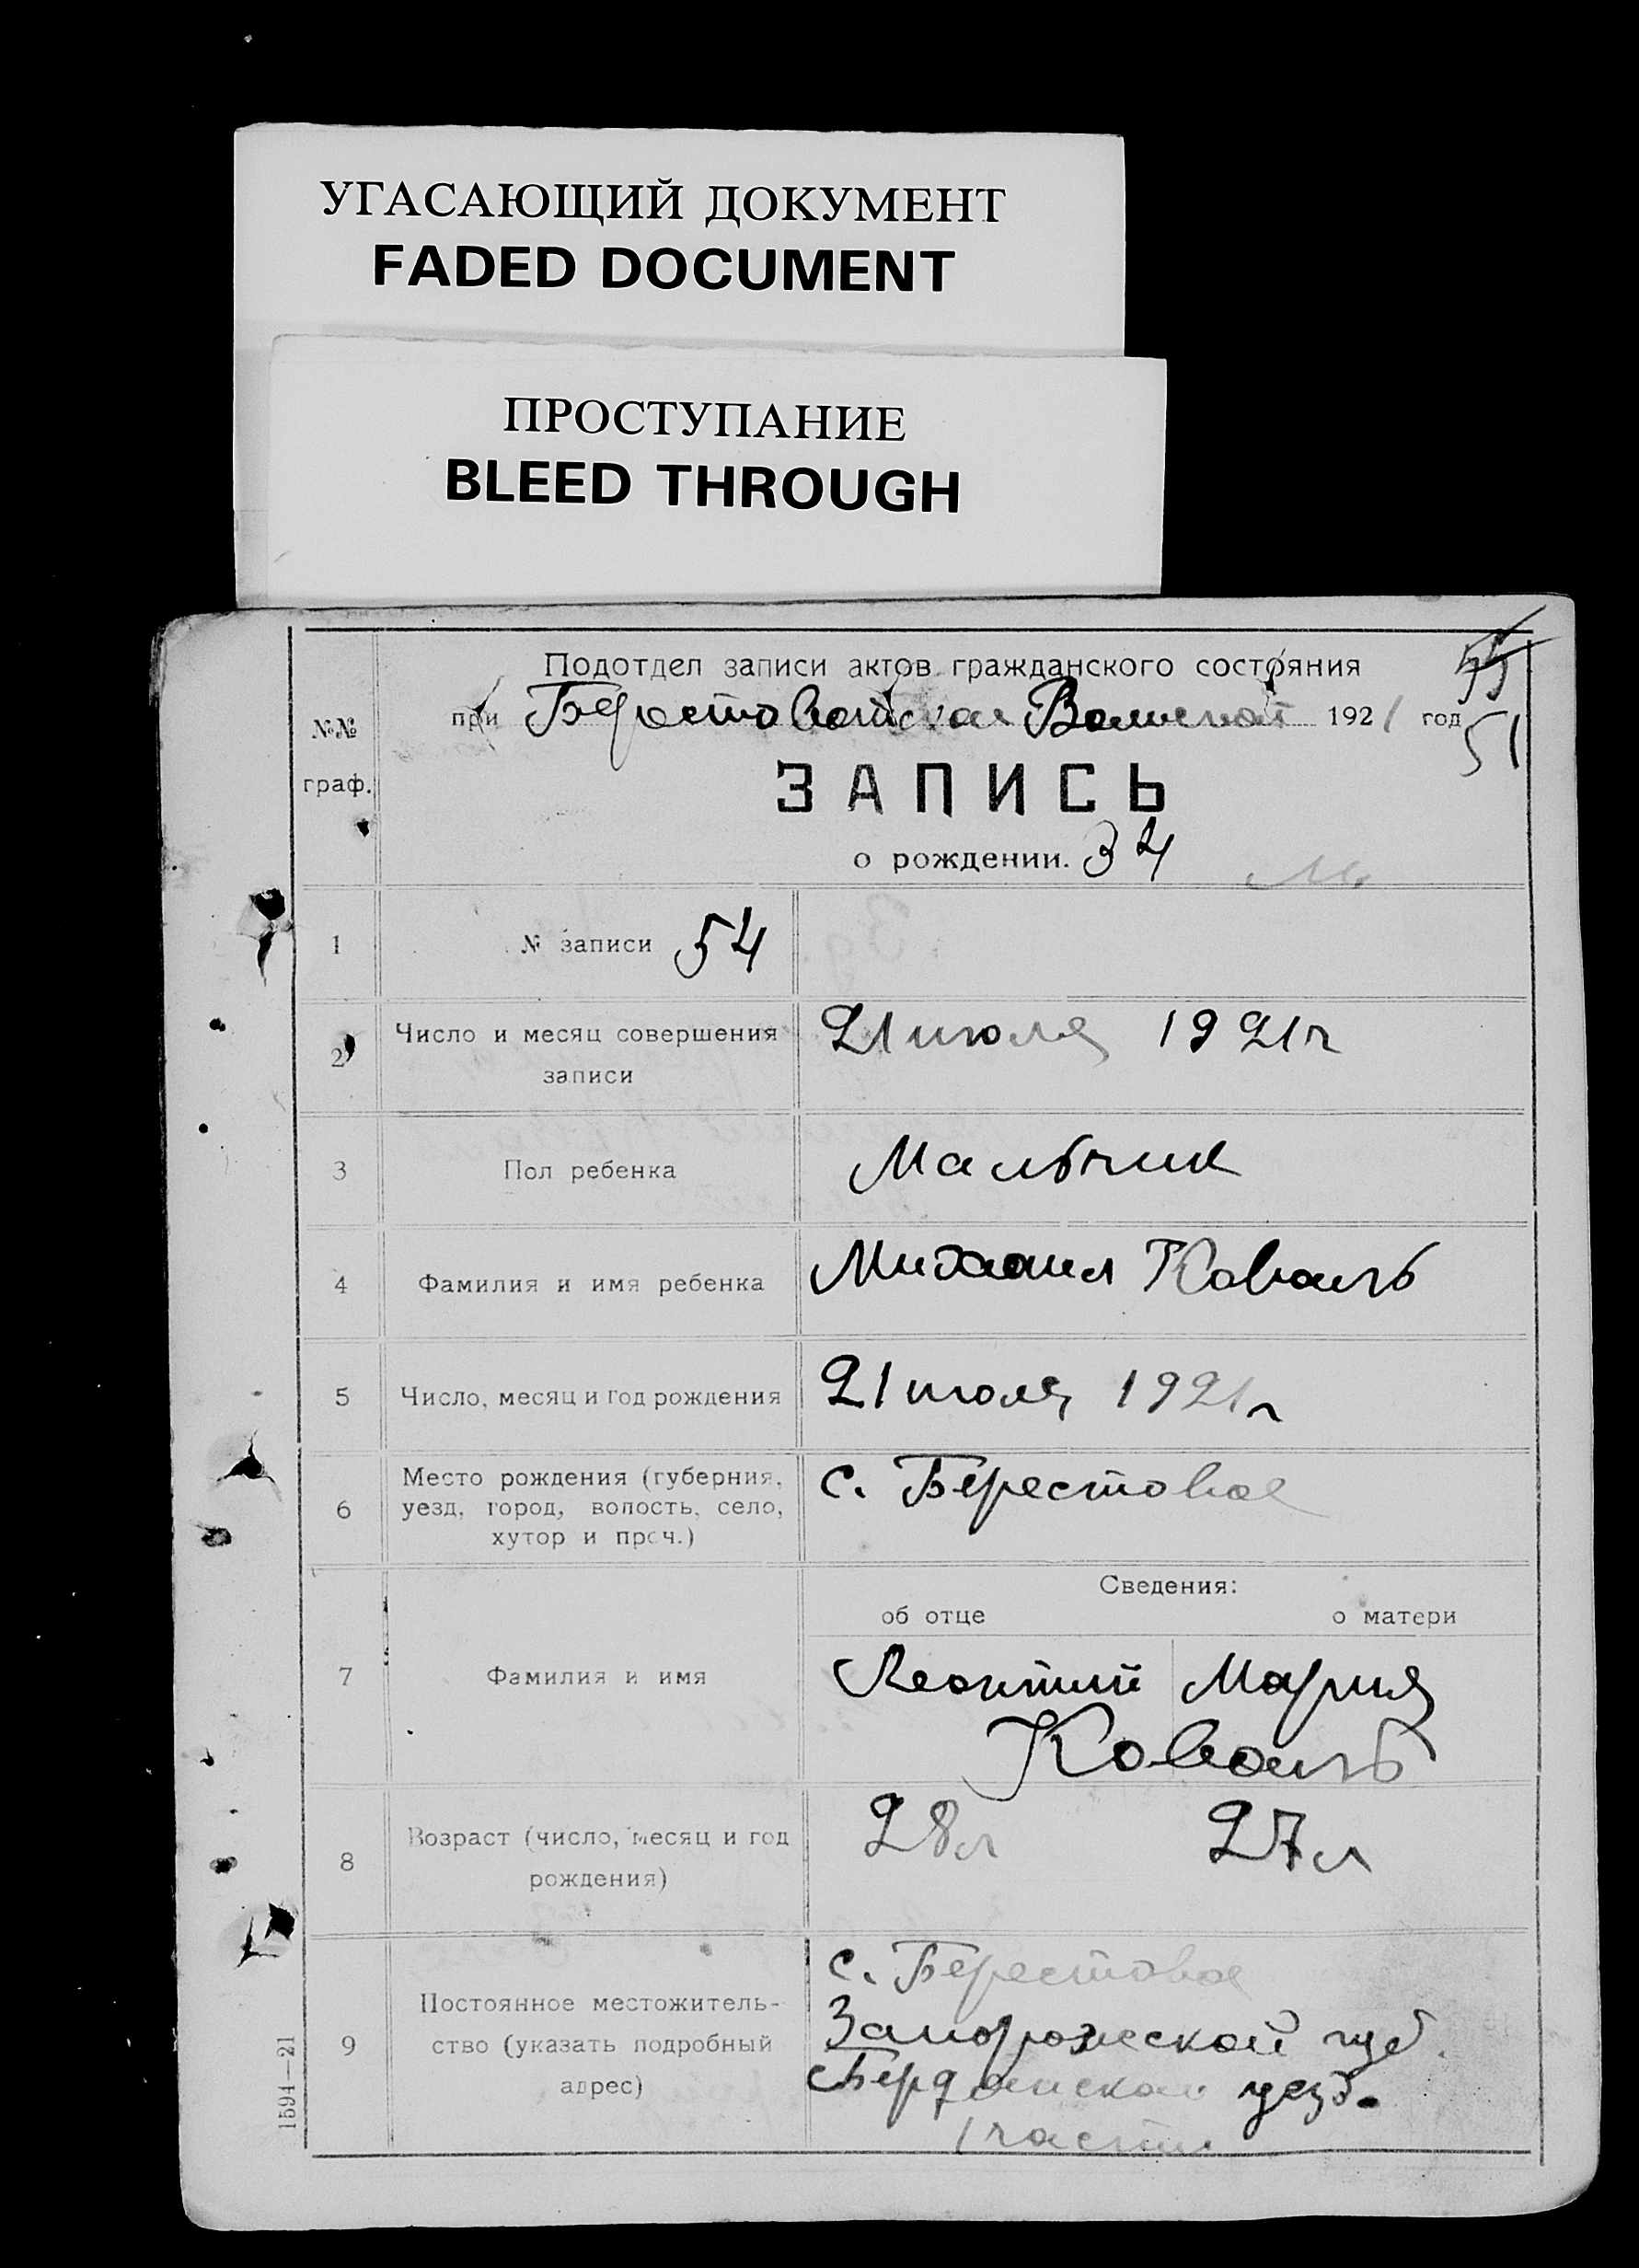 УГАСАЮЩИЙ ДОКУМЕНТ
FADED DOCUMENT
ПРОСТУПАНИЕ
BLEED THROUGH
Подотдел записи актов гражданского состояния
55
при Берестоватская Волисной 1921 год
51
№№ граф.
ЗАПИСЬ
о рождении. 34 М.
1 № записи 54
2 Число и месяц совершения записи
21 июля 1921 г
3 Пол ребенка Мальчик
4 Фамилия и имя ребенка Михаил Коваль
5 Число, месяц и год рождения 21 июля 1921 г
6 Место рождения (губерния,
уезд, город, волость, село,
хутор и проч.)
с. Берестовое
Сведения:
об отце о матери
7 Фамилия и имя Леонтий Мария
Коваль
8 Возраст (число, месяц и год
рождения)
28 л 27 л
9 Постоянное местожитель-
ство (указать подробный
адрес)
с. Берестовое
Запорожской губ.
Бердянского уезд.
1 части
1594—21